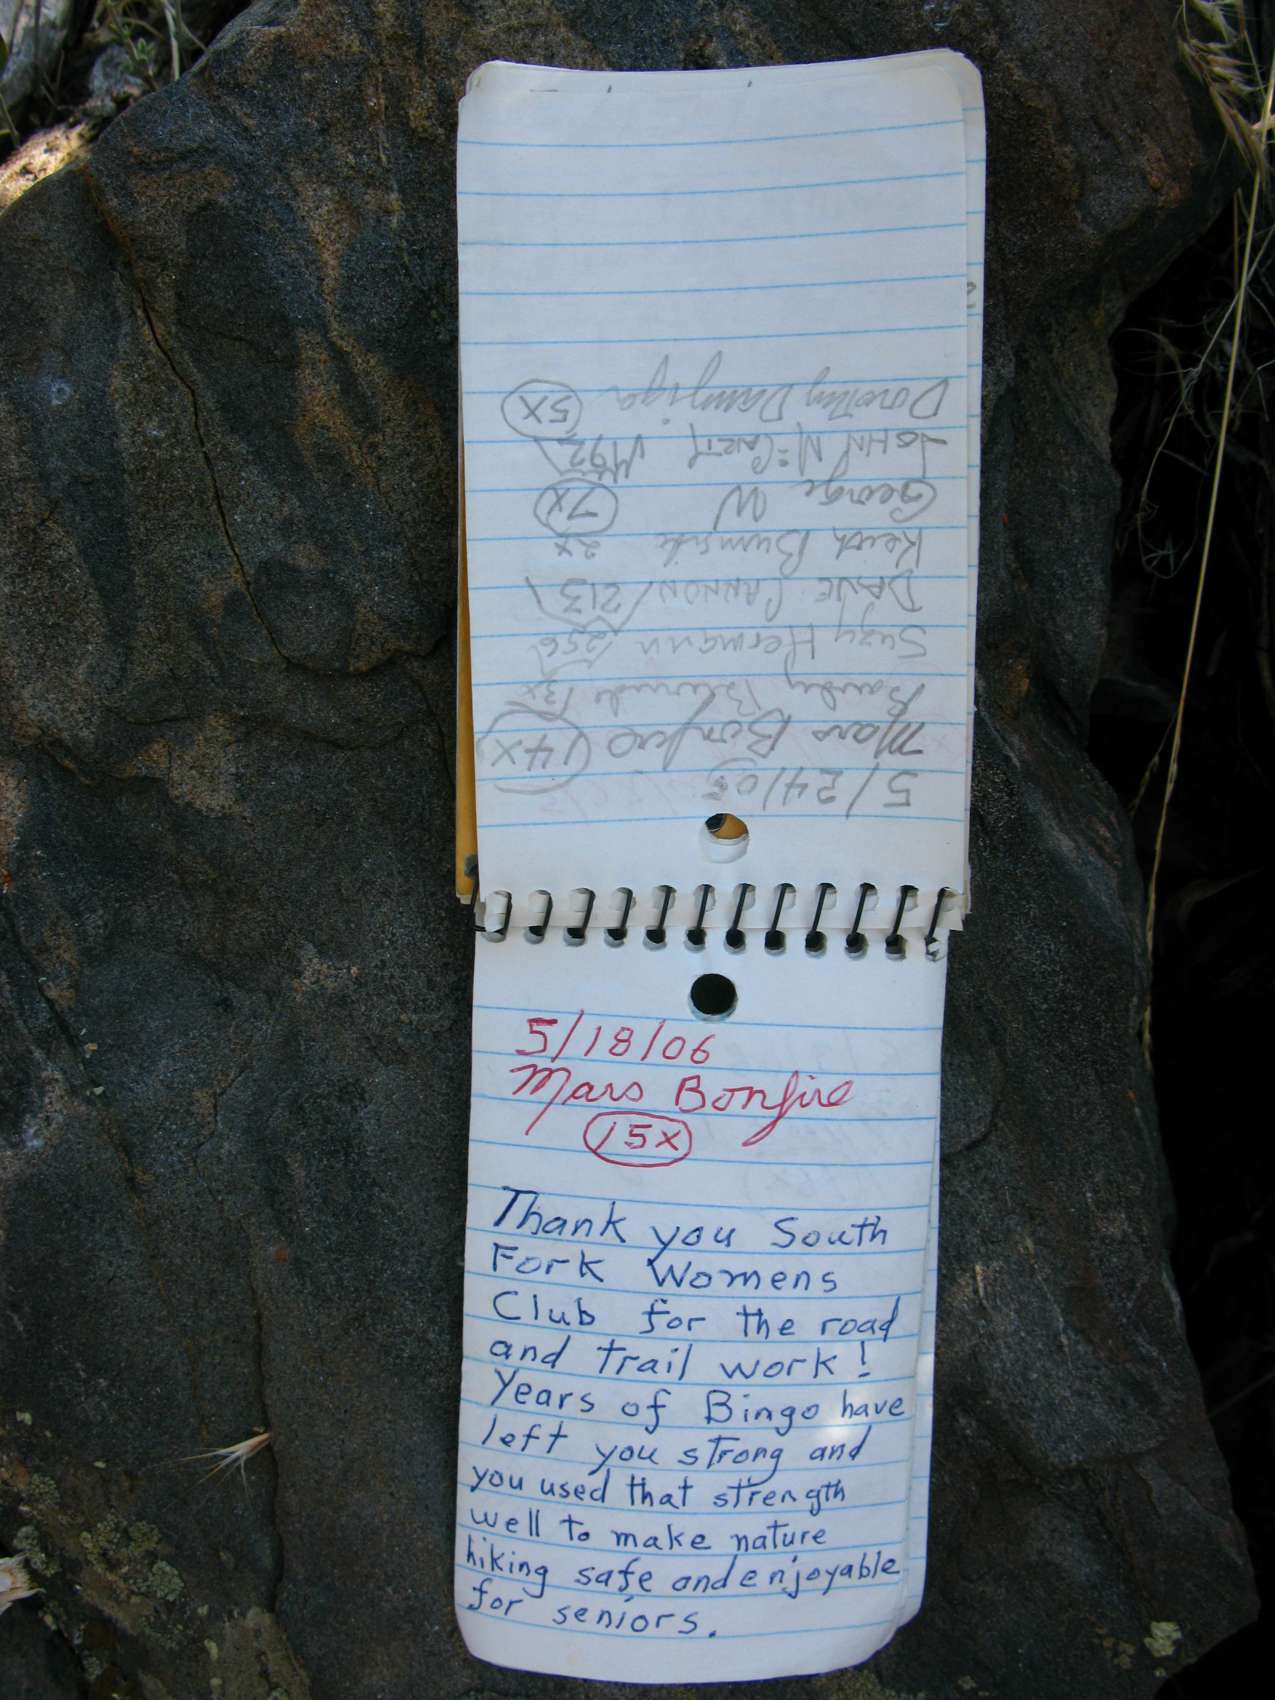 5/24/05
Mars Bonfire 14X
13X
Suzy Hermann 256
DAVE CANNON 213
Keith 2x
George W 7X
JOHN McCARTY 492
Dorothy 5X
5/18/06
Mars Bonfire
15x
Thank you South
Fork Womens
Club for the road
and trail work!
Years of Bingo have
left you strong and
you used that strength
well to make nature
hiking safe and enjoyable
for seniors.